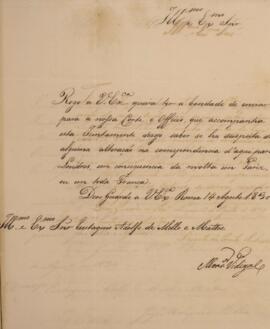 Illmo e Exmo Snr
Rogo a V. Exca queira ter a bondade de enviar
para a nossa Corte o Officio, que acompanha
esta. Juntamente dezejo saber se ha suspeita de
alguma alteração na correspondencia d'aqui para
Londres em consequencia da revolta em Paris
e em toda França.
Deos Guarde a V. Exa Roma 14 Agosto 1830
Illmo e Exmo Snr Eustaquio Adolfo de Mello e Mattos
Monsr Vidigal